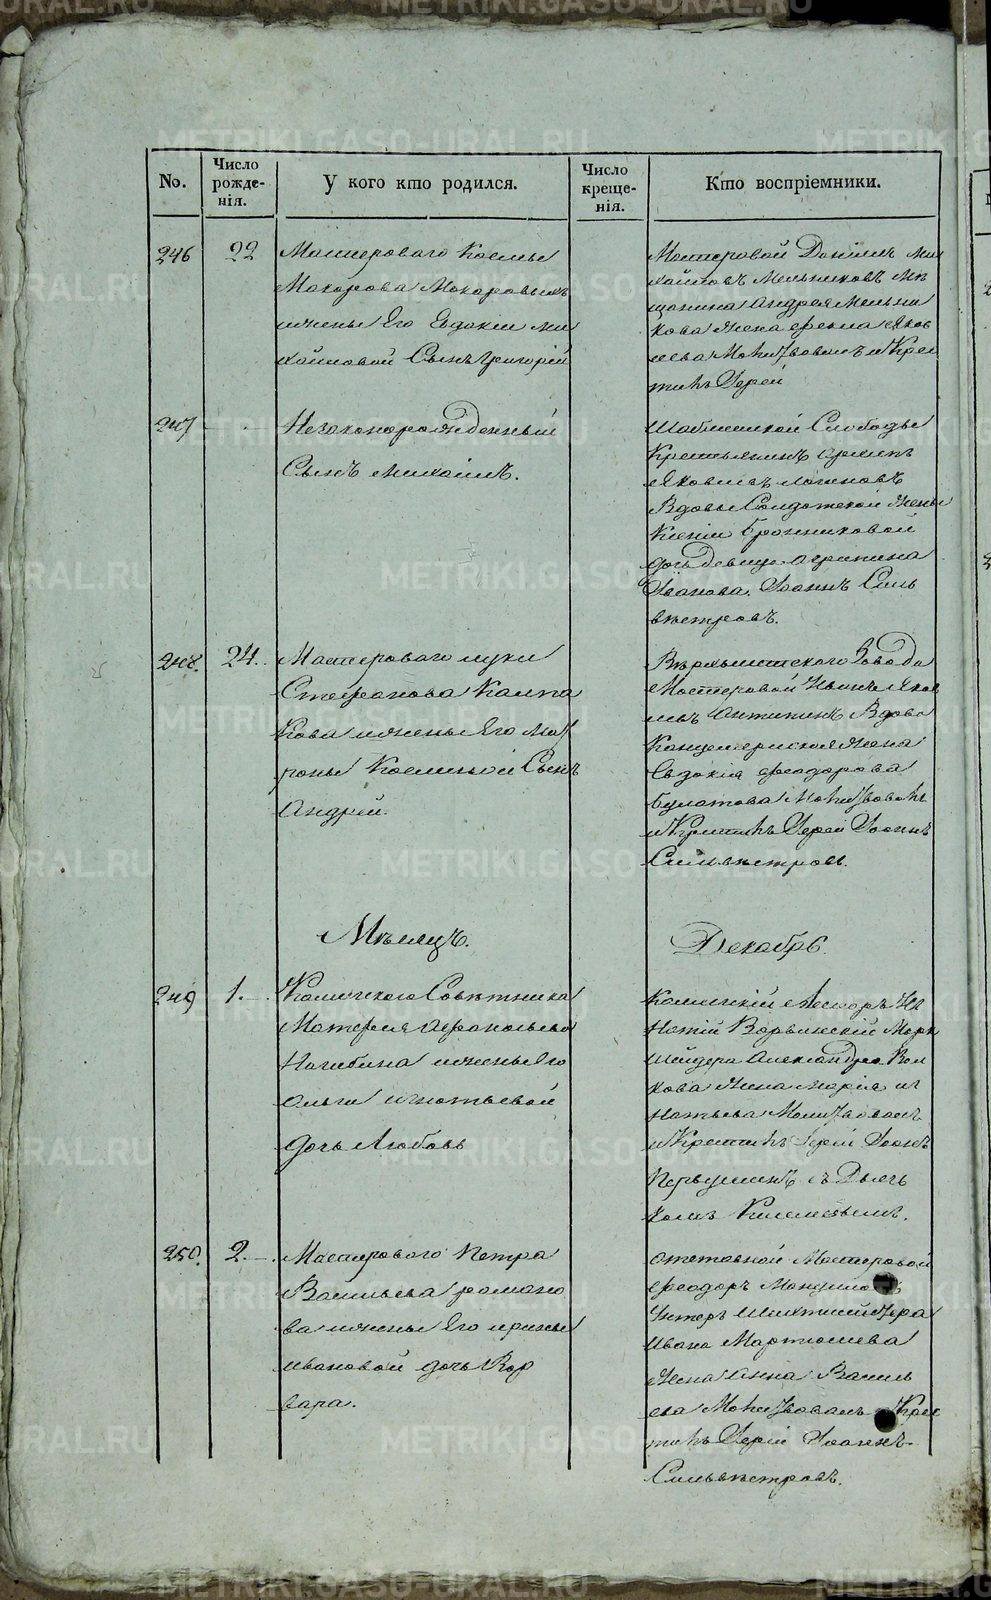 No.
Число рожде-нія.
У кого кто родился.
Число креще-нія.
Кто воспріемники.
246
22
Мастероваго Космы
Макарова Макаровыхъ
и жены Его Евдокіи Ми
хайловой Сынъ Григорій
Мастеровой Данiилъ Ми
хайловъ Мельниковъ Мѣ
щанина Андрея Мельни
кова Жена Фекла Яков
лева Молитвовалъ и Крес
тилъ Іерей
247
Незаконорожденный
Сынъ Михаилъ.
Слободы
Крестьянинъ
Яковлевъ Логиновъ
Вдовы Солдатской Жены
Ксеніи Бронниковой
дочь Девица Агрипина
Иванова. Іоаннъ Силь
вестровъ.
248.
24.
Мастероваго Луки
Стефанова Калта
кова и жены Его Мат
роны Козьминой Сынъ
Андрей.
Верхъисетскаго Завода
Мастеровой Яков
левъ Антипинъ Вдова
Канцелярская Жена
Евдокія Феодорова
Булатова Молитвовалъ
и Крестилъ Іерей Іоаннъ
Сильвестровъ.
Мѣсяцъ.
Декабрь.
249
1.
Колежскаго Совѣтника
Матфея Афонасьева
Нагибина и жены Его
Ольги Игнатьевой
дочь Любовь
Колежскій Асесоръ Иг
натій Варвинскій Марк
шейдера Александра Вол
кова Жена Марія Иг
натьева Молитвовалъ
и Крестилъ Іерей Іоаннъ
Первушинъ съ Дьяч
комъ Киселевымъ.
250.
2.
Мастероваго Петра
Васильева Романо
ва и жены Его Ирины
Ивановой дочь Вар
вара.
Отставной Мастеровой
Феодоръ
Унтеръ Шихтмейстера
Ивана Мартюшева
Жена Анна Василь
ева Молитвовалъ и Крес
тилъ Іерей Іоаннъ
Сильвестровъ.
METRIKI.GASO-URAL.RU